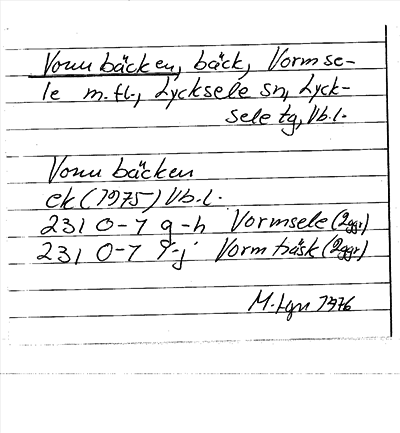 Vormbäcken, bäck, Vormse-
le m.fl., Lycksele sn, Lyck-
sele tg, Vb.l.
Vormbäcken
ek (1975) Vb.l.
231 0-1 g-h Vormsele (2ggr)
231 0-1 i-j Vormträsk (2ggr)
1976